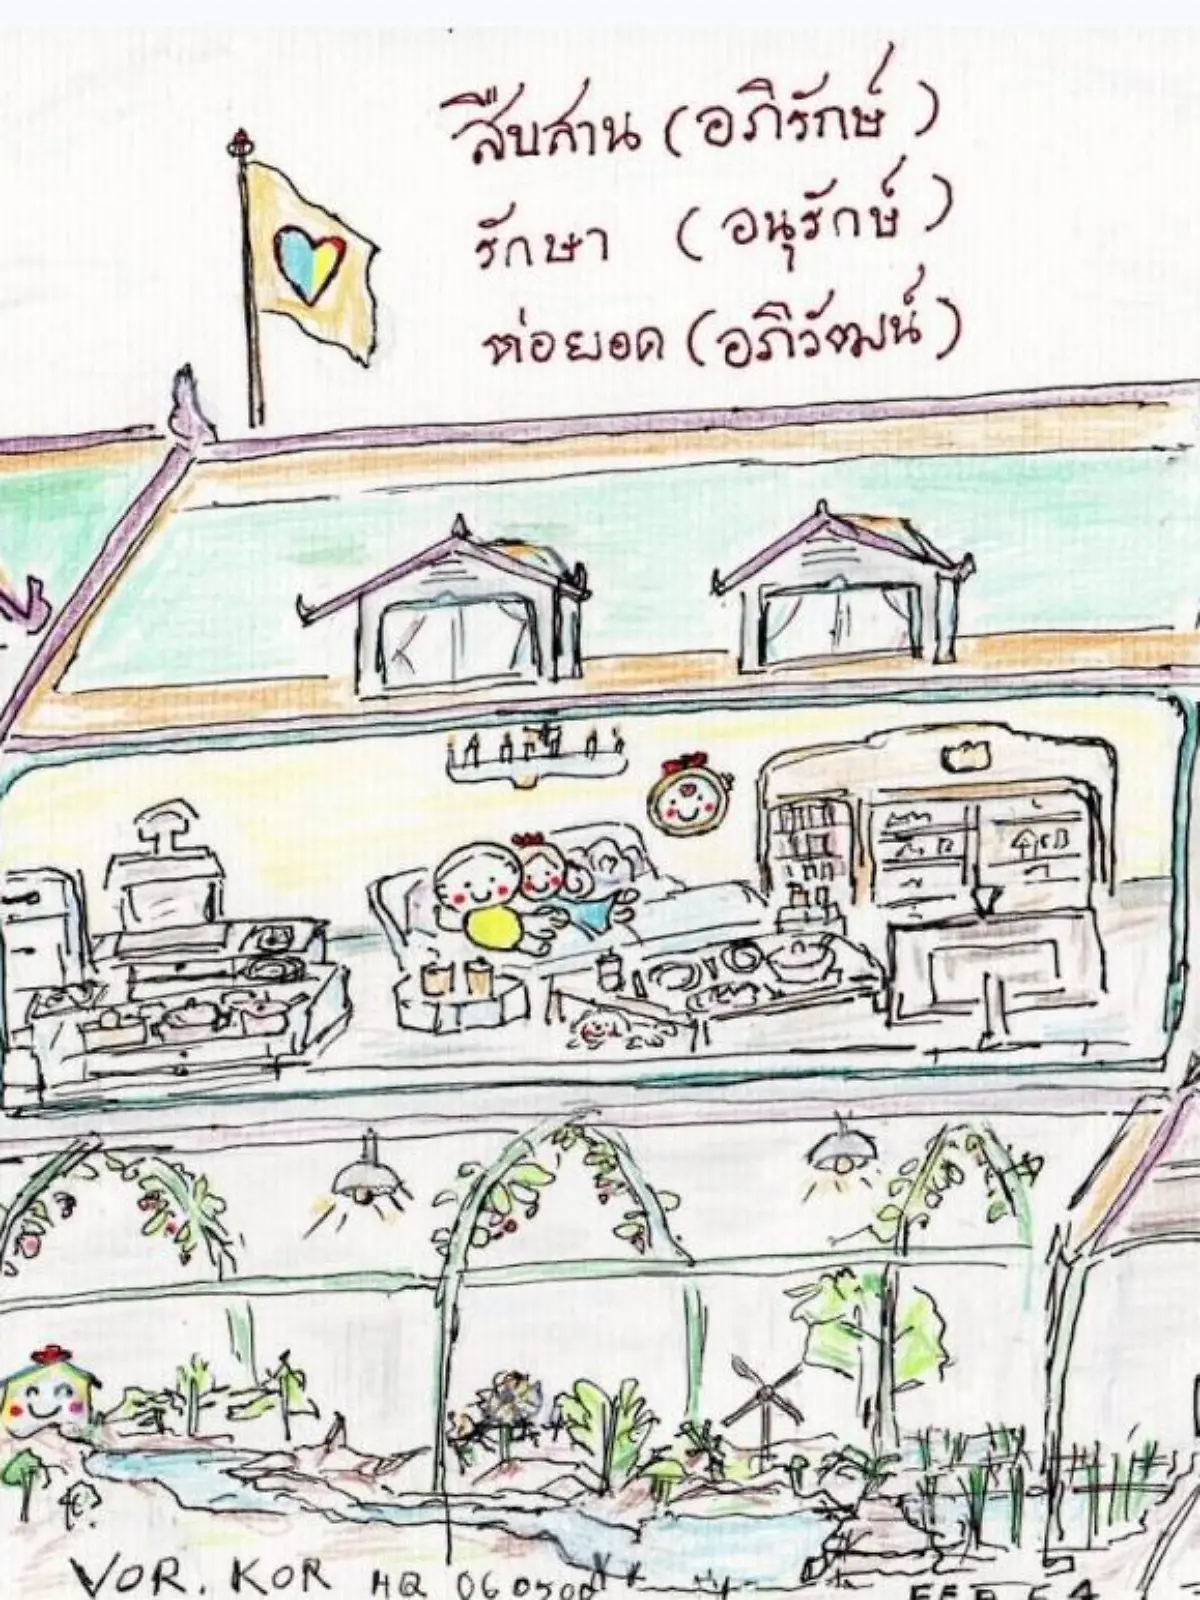 สืบสาน (อภิรักษ์)
รักษา (อนุรักษ์)
ต่อยอด (อภิวัฒน์)
VOR. KOR HQ 060500
FEB 64